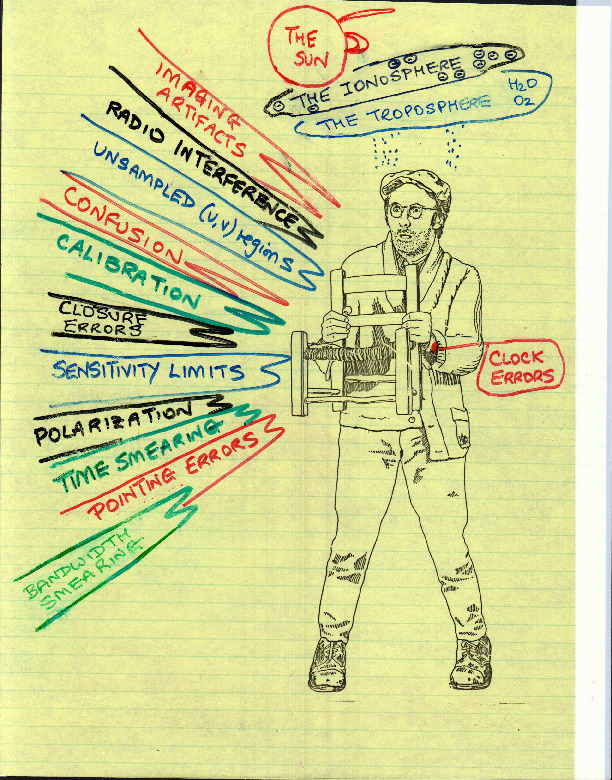 THE
SUN
THE IONOSPHERE
THE TROPOSPHERE
H2O
O2
IMAGING
ARTIFACTS
RADIO INTERFERENCE
UNSAMPLED (u,v) regions
CONFUSION
CALIBRATION
CLOSURE
ERRORS
SENSITIVITY LIMITS
CLOCK
ERRORS
POLARIZATION
TIME SMEARING
POINTING ERRORS
BANDWIDTH
SMEARING